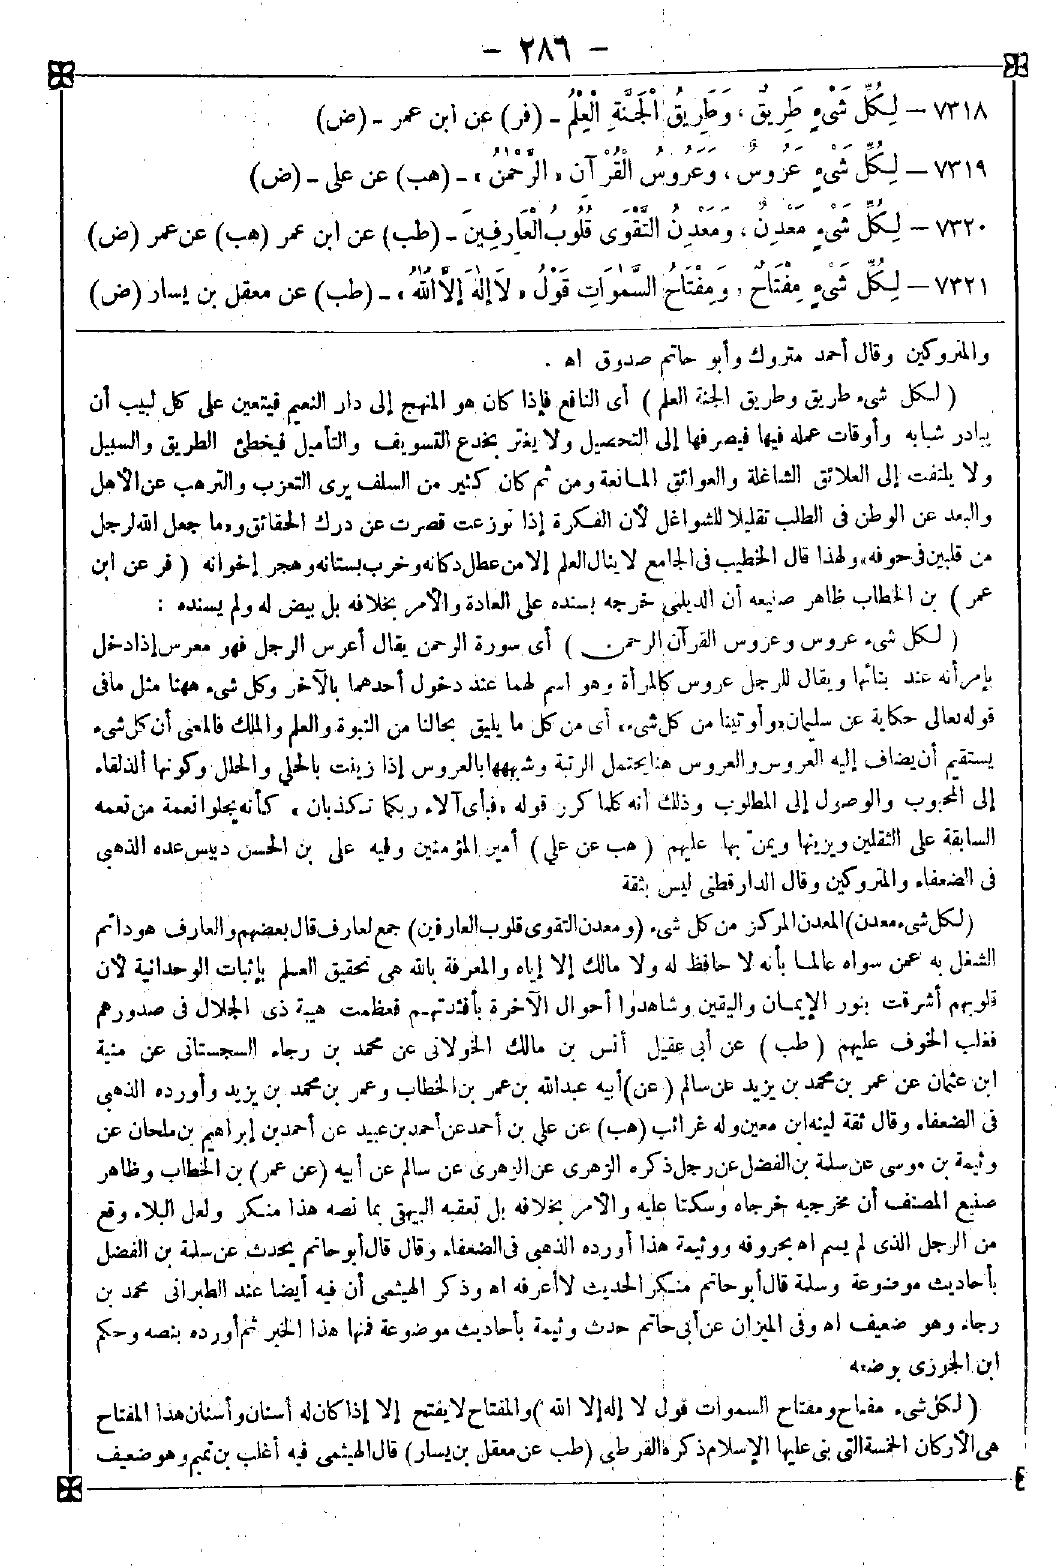 — ٢٨٦ —
٧٣١٨ — لِكُلِّ شَيْءٍ طَرِيقٌ ، وَطَرِيقُ الْجَنَّةِ الْعِلْمُ ـ (فر) عن ابن عمر ـ (ض)
٧٣١٩ — لِكُلِّ شَيْءٍ عَرُوسٌ ، وَعَرُوسُ الْقُرْآنِ « الرَّحْمٰنُ » ـ (هب) عن على ـ (ض)
٧٣٢٠ — لِكُلِّ شَيْءٍ مَعْدِنٌ ، وَمَعْدِنُ التَّقْوَى قُلُوبُ الْعَارِفِينَ ـ (طب) عن ابن عمر (هب) عن عمر (ض)
٧٣٢١ — لِكُلِّ شَيْءٍ مِفْتَاحٌ ، وَمِفْتَاحُ السَّمٰوَاتِ قَوْلُ « لَا إِلٰهَ إِلَّا اللهُ » ـ (طب) عن معقل بن يسار (ض)
والمتروكين وقال أحمد متروك وأبو حاتم صدوق اه .
( لكل شىء طريق وطريق الجنة العلم ) أى النافع فإذا كان هو المنهج إلى دار النعيم فيتعين على كل لبيب أن
يبادر شبابه وأوقات عمله فيها فيصرفها إلى التحصيل ولا يغتر بخدع التسويف والتأميل فيخطئ الطريق والسبيل
ولا يلتفت إلى العلائق الشاغلة والعوائق المانعة ومن ثم كان كثير من السلف يرى التعزب والترهب عن الأهل
والبعد عن الوطن فى الطلب تقليلا للشواغل لأن الفكرة إذا توزعت قصرت عن درك الحقائق و«ما جعل الله لرجل
من قلبين فى جوفه» ولهذا قال الخطيب فى الجامع لا ينال العلم إلا من عطل دكانه وخرب بستانه وهجر إخوانه ( فر عن ابن
عمر ) بن الخطاب ظاهر صنيعه أن الديلمى خرجه بسنده على العادة والأمر بخلافه بل بيض له ولم يسنده :
( لكل شىء عروس وعروس القرآن الرحمن ) أى سورة الرحمن يقال أعرس الرجل فهو معرس إذا دخل
بإمرأته عند بنائها ويقال للرجل عروس كالمرأة وهو اسم لهما عند دخول أحدهما بالآخر وكل شىء ههنا مثل مافى
قوله تعالى حكاية عن سليمان «وأوتينا من كل شىء» أى من كل ما يليق بحالنا من النبوة والعلم والملك فالمعنى أن كل شىء
يستقيم أن يضاف إليه العروس والعروس هنا يحتمل الرتبة وشبهها بالعروس إذا زينت بالحلي والحلل وكونها ألذ لقاء
إلى المحبوب والوصول إلى المطلوب وذلك أنه كلما كرر قوله «فبأى آلاء ربكما تكذبان» كأنه يجلو نعمة من نعمه
السابقة على الثقلين ويزينها ويمن بها عليهم ( هب عن علي ) أمير المؤمنين وفيه على بن الحسن دبيس عده الذهبى
فى الضعفاء والمتروكين وقال الدارقطنى ليس بثقة
(لكل شىء معدن) المعدن المركز من كل شىء (ومعدن التقوى قلوب العارفين) جمع لعارف قال بعضهم والعارف هو دائم
الشغل به عمن سواه عالما بأنه لا حافظ له ولا مالك إلا إياه والمعرفة بالله هى تحقيق العلم بإثبات الوحدانية لأن
قلوبهم أشرقت بنور الإيمان واليقين وشاهدوا أحوال الآخرة بأفئدتهم فعظمت هيبة ذى الجلال فى صدورهم
فغلب الخوف عليهم ( طب ) عن أبى عقيل أنس بن مالك الخولانى عن محمد بن رجاء السجستانى عن منبة
ابن عثمان عن عمر بن محمد بن يزيد عن سالم ( عن) أبيه عبد الله بن عمر بن الخطاب وعمر بن محمد بن يزيد وأورده الذهبى
فى الضعفاء وقال ثقة لينه ابن معين وله غرائب (هب) عن على بن أحمد عن أحمد بن عبيد عن أحمد بن إبراهيم بن ملحان عن
وثيمة بن موسى عن سلمة بن الفضل عن رجل ذكره الزهرى عن الزهرى عن سالم عن أبيه (عن عمر) بن الخطاب وظاهر
صنيع المصنف أن مخرجيه خرجاه وسكتا عليه والأمر بخلافه بل تعقبه البيهقى بما نصه هذا منكر ولعل البلاء وقع
من الرجل الذى لم يسم اه بحروفه ووثيمة هذا أورده الذهبى فى الضعفاء وقال قال أبو حاتم يحدث عن سلمة بن الفضل
بأحاديث موضوعة وسلمة قال أبو حاتم منكر الحديث لا أعرفه اه وذكر الهيثمى أن فيه أيضا عند الطبرانى محمد بن
رجاء وهو ضعيف اه وفى الميزان عن أبى حاتم حدث وثيمة بأحاديث موضوعة فمنها هذا الخبر ثم أورده بنصه وحكم
ابن الجوزى بوضعه
( لكل شىء مفتاح ومفتاح السموات قول لا إله إلا الله ) والمفتاح لا يفتح إلا إذا كان له أسنان وأسنان هذا المفتاح
هى الأركان الخمسة التى بنى عليها الإسلام ذكره القرطبى (طب عن معقل بن يسار) قال الهيثمى فيه أغلب بن تميم وهو ضعيف